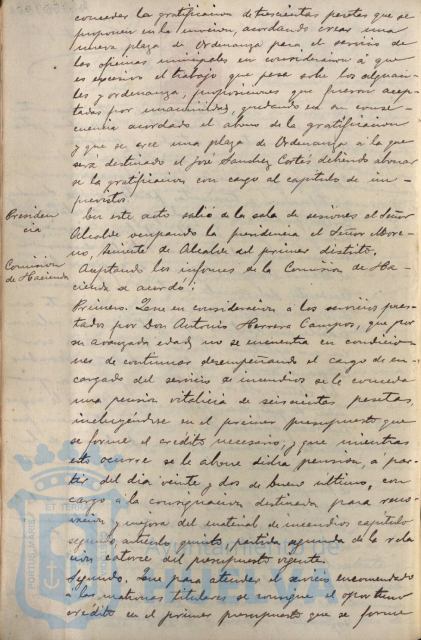 conceder la gratificacion de trescientas pesetas que se
proponen en la mocion, acordando crear una
nueva plaza de Ordenanza para el servicio de
las oficinas municipales en consideracion á que
es excesivo el trabajo que pesa sobre los alguaci-
les y ordenanza, proposiciones que fueron acep-
tadas por unanimidad, quedando en su conse-
cuencia acordado el abono de la gratificacion
y que se cree una plaza de Ordenanza á la que
será destinado el José Sanchez Cortés debiendo abonar-
se la gratificacion con cargo al capitulo de im-
previstos.
Presiden-
cia
En este acto salió de la sala de sesiones el Señor
Alcalde ocupando la presidencia el Señor More-
no, teniente de Alcalde del primer distrito.
Comision
de Hacienda
Aceptando los informes de la Comision de Ha-
cienda se acordó:
Primero: Que en consideracion á los servicios pres-
tados por Don Antonio Herrera Campos, que por
su avanzada edad, no se encuentra en condicio-
nes de continuar desempeñando el cargo de en-
cargado del servicio de incendios se le conceda
una pension vitalicia de seiscientas pesetas,
incluyéndose en el primer presupuesto que
se forme el credito necesario, y que mientras
esto ocurre se le abone dicha pension, á par-
tir del dia veinte y dos de Enero último, con
cargo á la consignacion destinada para reno-
vacion y mejora del material de incendios capitulo
segundo, articulo quinto, partida segunda de la rela-
cion catorce del presupuesto vigente.
Segundo. Que para atender el servicio encomendado
á las matronas titulares se consigne el oportuno
crédito en el primer presupuesto que se forme
PORTUS MARIS ET TERRAE
Ayuntamiento de